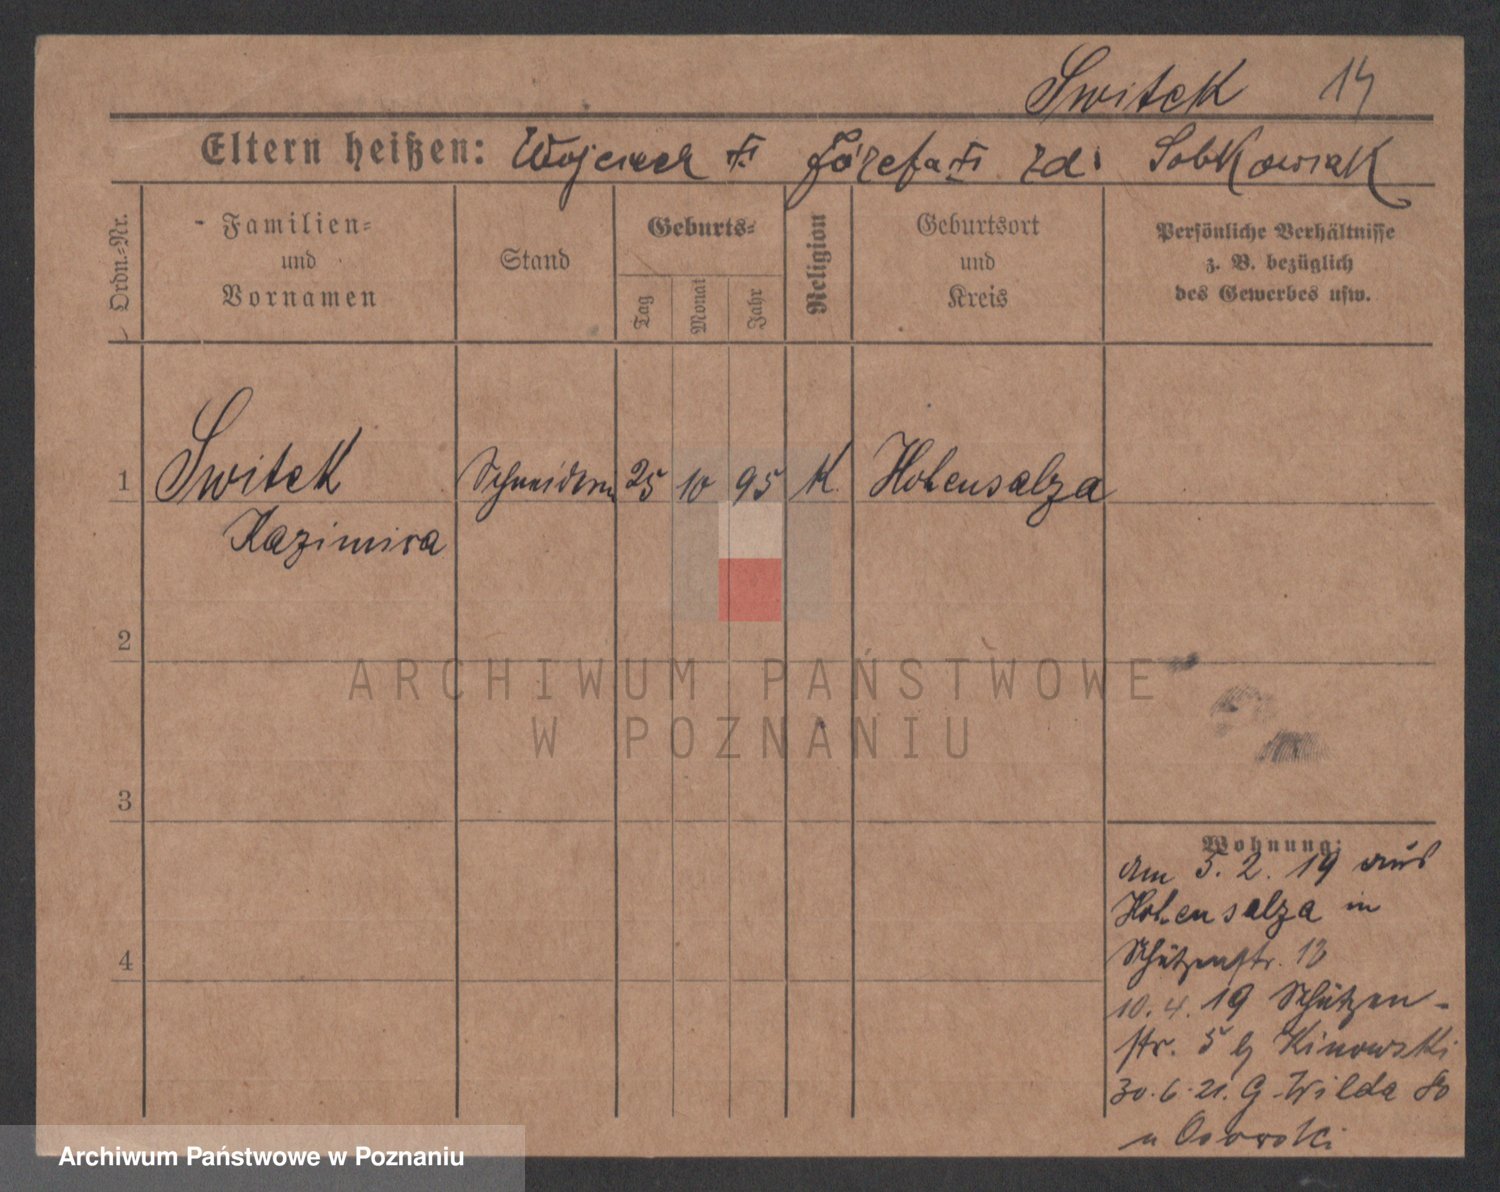 Switek 14
Eltern heißen: Wojciech Józefa zd. Sobkowiak
Ordn.-Nr.
Familien-
und
Vornamen
Stand
Geburts-
Tag
Monat
Jahr
Religion
Geburtsort
und
Kreis
Persönliche Verhältnisse
z. B. bezüglich
des Gewerbes usw.
1 Switek Schneiderin 25 10 95 K. Hohensalza
Kazimira
2
3
4
Wohnung:
am 5. 2. 19 aus
Hohensalza in
Schützenstr. 13
10. 4. 19 Schützen-
str. 5 b Kinowski
30. 6. 21. G. Wilda 80
u
ARCHIWUM PAŃSTWOWE
W POZNANIU
Archiwum Państwowe w Poznaniu